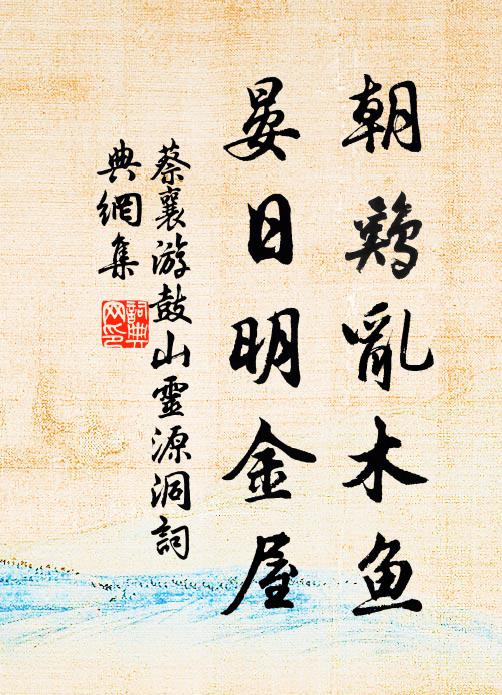 朝鷄亂木魚
晏日明金屋
蔡襄游鼓山靈源洞詞
典網集
詞典
网印